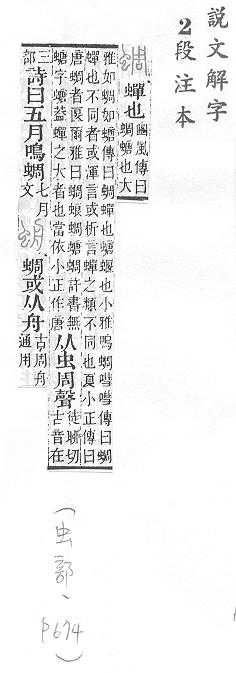 說文解字
2段注本
蜩 蟬也 豳風傳曰
蜩螗也大
雅如蜩如螗傳曰蜩蟬也螗蝘也小雅鳴蜩嘒嘒傳曰蜩
蟬也不同者或渾言或析言蟬之類不同也夏小正傳曰
唐蜩者匽爾雅曰蜩蜋蜩螗蜩許書無
螗字螗葢蟬之大者也當依小正作唐
从虫周聲 徒聊切
古音在
三部
詩曰五月鳴蜩 七月
文
蜩或从舟 古周舟
通用
(虫部、p674)